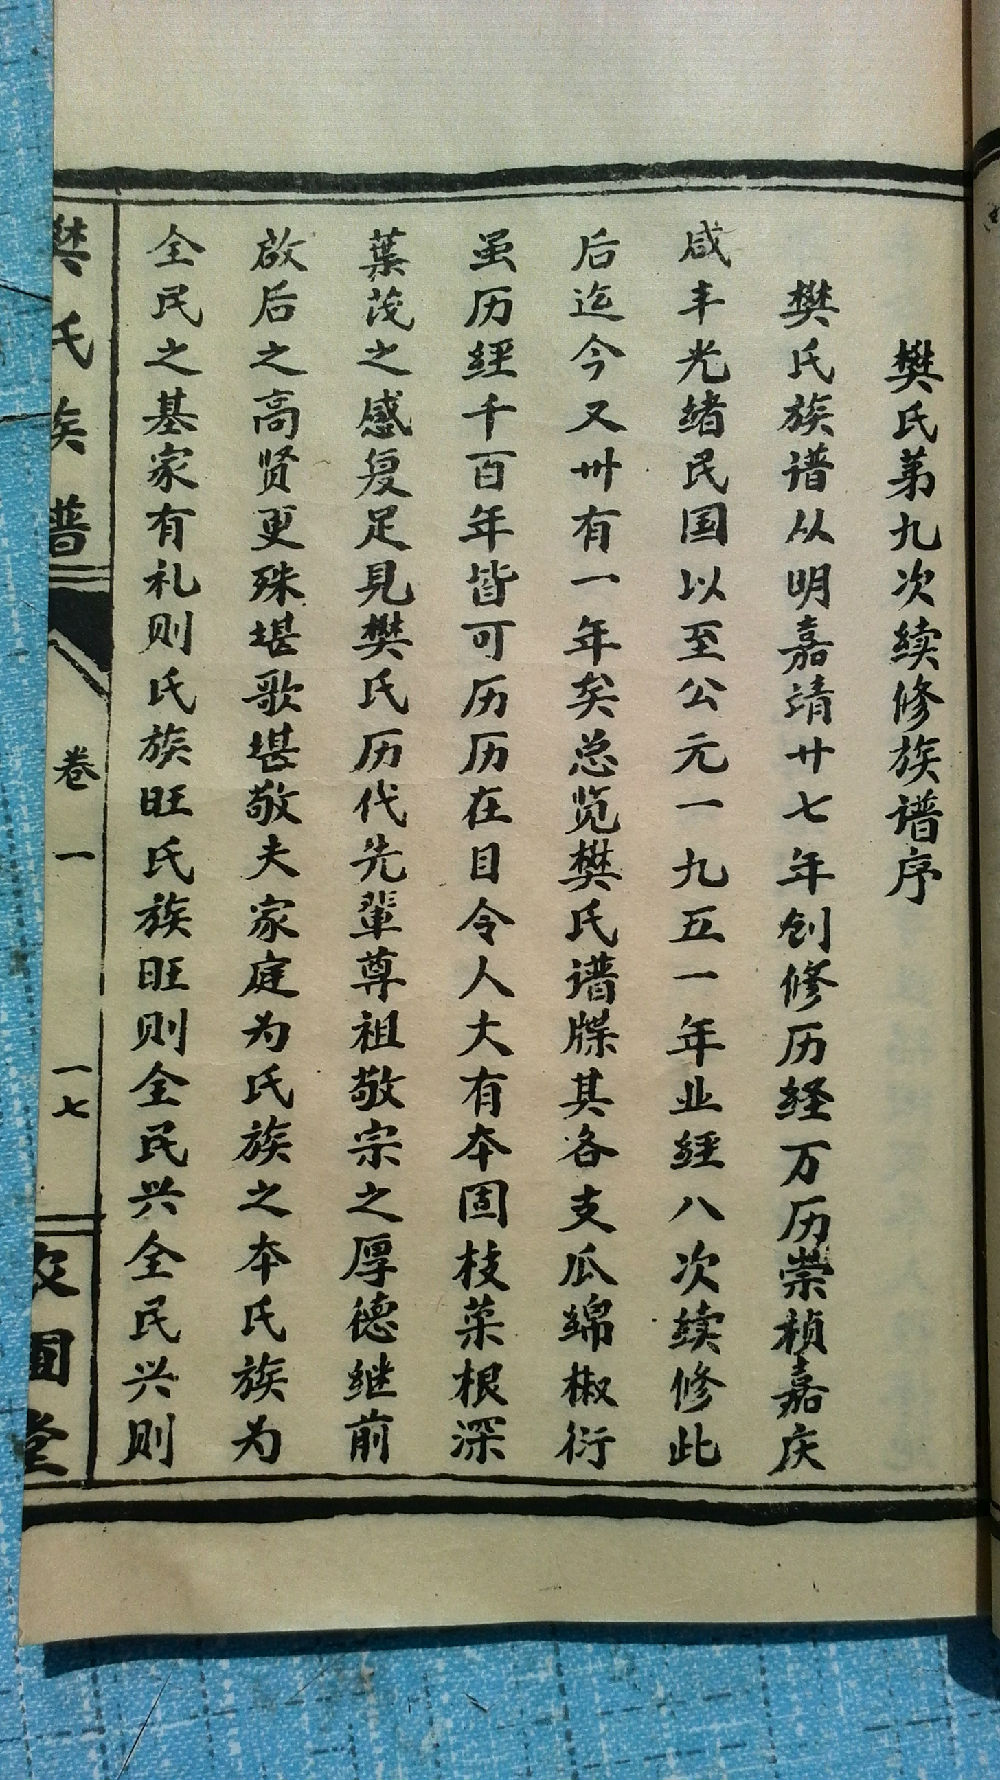 樊氏第九次续修族谱序
樊氏族谱从明嘉靖廿七年创修历经万历崇桢嘉庆
咸丰光绪民国以至公元一九五一年业经八次续修此
后迄今又卅有一年矣总览樊氏谱牒其各支瓜绵椒衍
虽历经千百年皆可历历在目令人大有本固枝荣根深
葉茂之感复足見樊氏历代先辈尊祖敬宗之厚德继前
啟后之高贤更殊堪歌堪敬夫家庭为氏族之本氏族为
全民之基家有礼则氏族旺氏族旺则全民兴全民兴则
樊氏族譜
卷一
一七
文圃堂